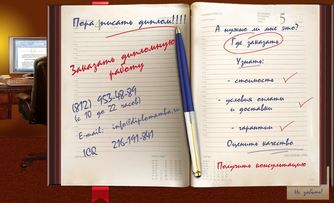 Пора писать диплом!!!!
Заказать дипломную
работу
(812) 953-48-89
(с 10 до 22 часов)
E-mail:
ICR
А нужно ли мне это?
Где заказать
Узнать:
- стоимость
- условия оплаты
и доставки
- гарантии
Оценить качество
Получить консультацию
Не забыть!
5